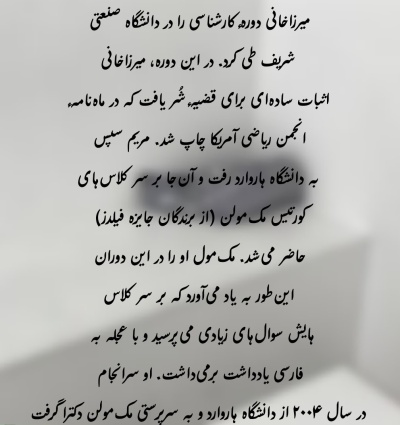 میرزاخانی دورهٔ کارشناسی را در دانشگاه صنعتی
شریف طی کرد. در این دوره، میرزاخانی
اثبات ساده‌ای برای قضیهٔ شُر یافت که در ماه‌نامهٔ
انجمن ریاضی آمریکا چاپ شد. مریم سپس
به دانشگاه هاروارد رفت و آن‌جا بر سر کلاس‌های
کورتیس مک‌مولن (از برندگان جایزه فیلدز)
حاضر می‌شد. مک‌مول او را در این دوران
این‌طور به یاد می‌آورد که بر سر کلاس
هایش سوال‌های زیادی می‌پرسید و با عجله به
فارسی یادداشت برمی‌داشت. او سرانجام
در سال ۲۰۰۴ از دانشگاه هاروارد و به سرپرستی مک‌مولن دکترا گرفت